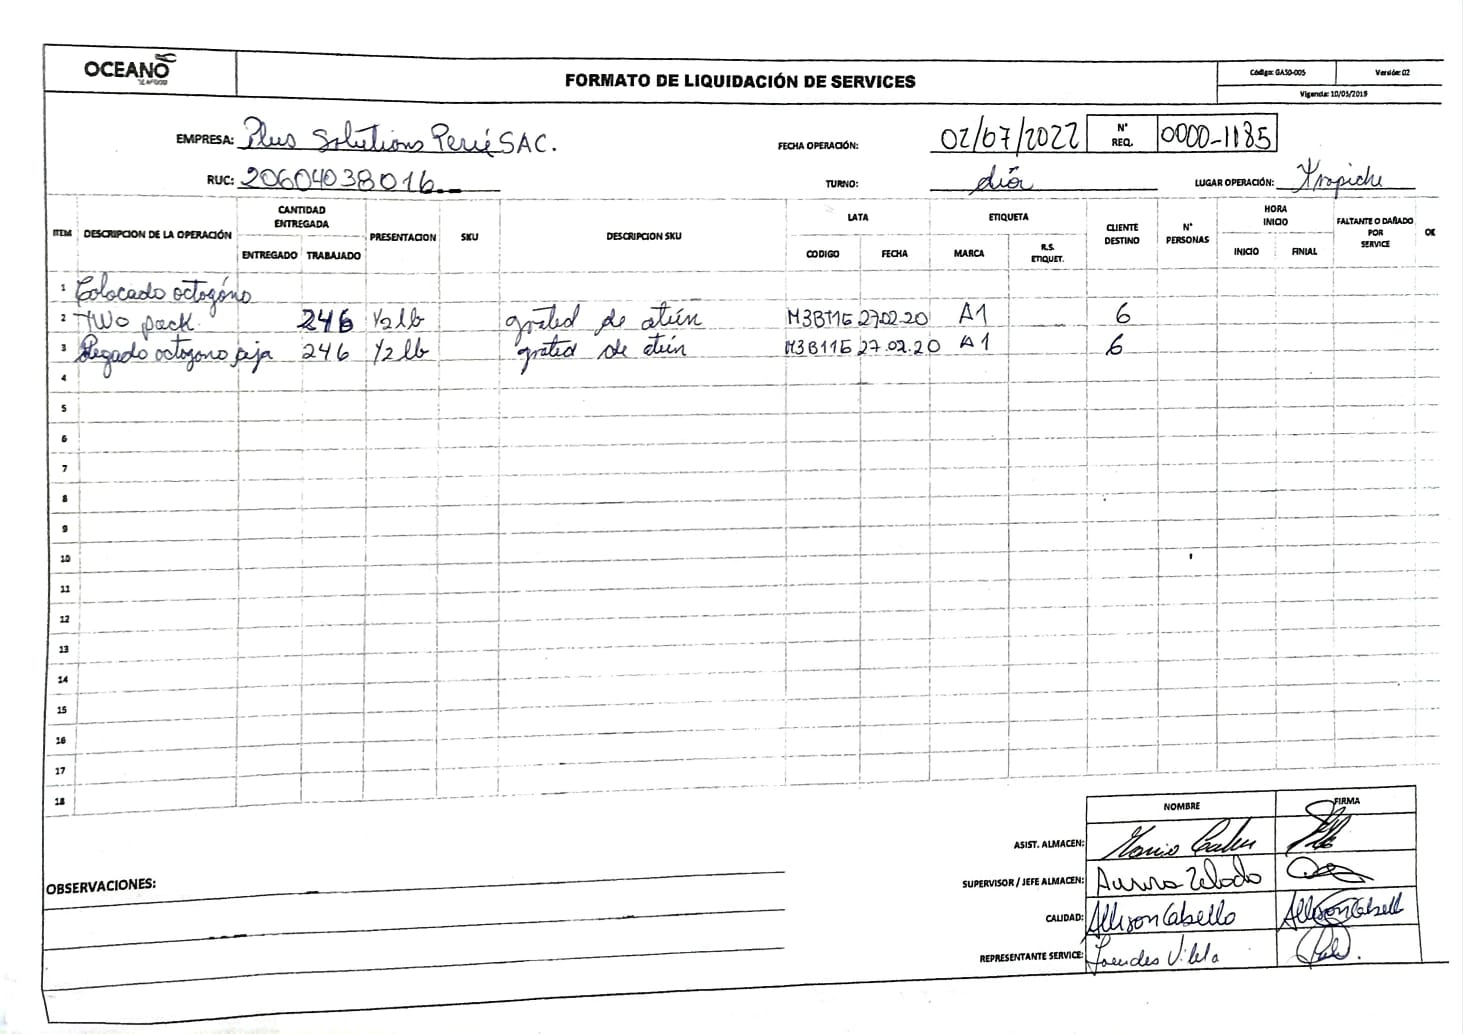 OCEANO
SEAFOOD
FORMATO DE LIQUIDACIÓN DE SERVICES
Código: GASO-005
Versión: 02
Vigencia: 10/05/2019
EMPRESA: Plus Solutions Perú SAC.
FECHA OPERACIÓN: 02/07/2022
N° REQ. 0000-1185
RUC: 20604038016
TURNO: día
LUGAR OPERACIÓN: Trapiche
ITEM
DESCRIPCION DE LA OPERACIÓN
CANTIDAD ENTREGADA
ENTREGADO
TRABAJADO
PRESENTACION
SKU
DESCRIPCION SKU
LATA
CODIGO
FECHA
ETIQUETA
MARCA
R.S. ETIQUET.
CLIENTE DESTINO
N° PERSONAS
HORA INICIO
INICIO
FINIAL
FALTANTE O DAÑADO POR SERVICE
OK
1 Colocado octogóno
2 Two pack 246 1/2 lb grated de atún M3B11E 27.02.20 A1 6
3 Pegado octogono caja 246 1/2 lb grated de atún M3B11E 27.02.20 A1 6
4
5
6
7
8
9
10
11
12
13
14
15
16
17
18
NOMBRE
FIRMA
ASIST. ALMACEN:
SUPERVISOR / JEFE ALMACEN: Aurora
CALIDAD: Allison Cabello Allison Cabell
REPRESENTANTE SERVICE: Lourdes Vilela
OBSERVACIONES: